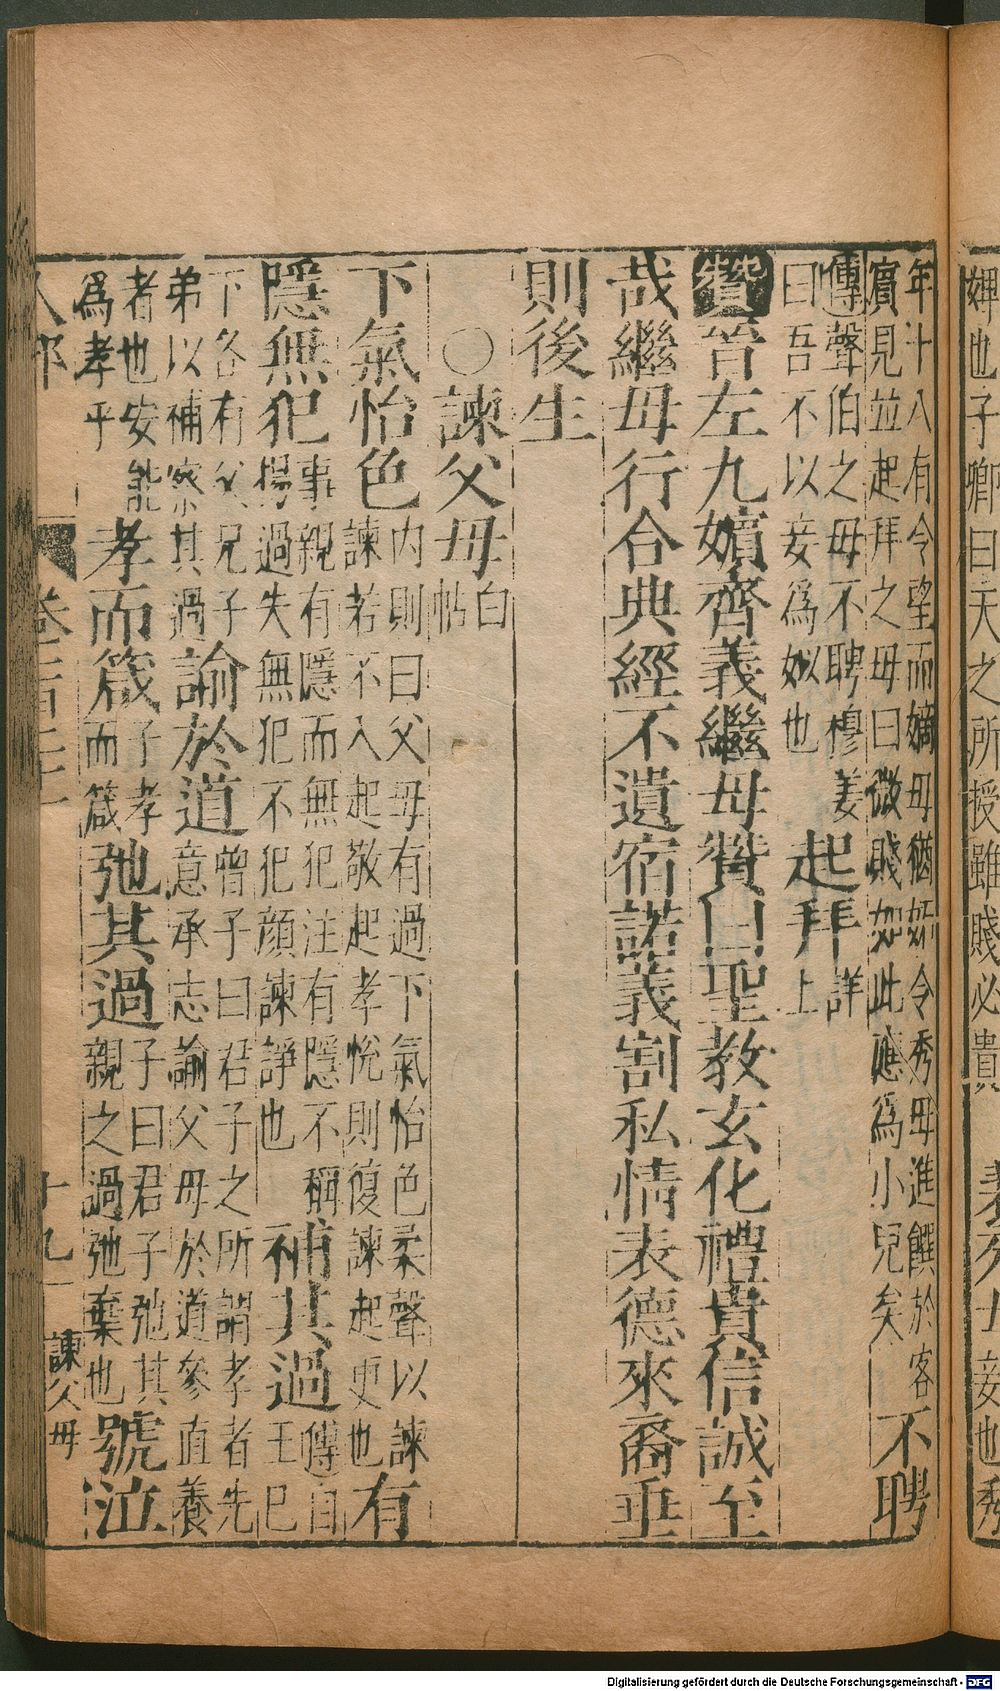 婢也子卿曰天之所授雖賤必貴
妾也秀
年十八有令望而嫡母猶妬令秀母進饌於客
賓見並起拜之母曰微賤如此應為小兒矣
不聘
傳聲伯之母不聘穆姜
曰吾不以妾為姒也
起拜
詳
上
贊晉左九嬪齊義繼母贊曰聖教玄化禮貴信誠至
哉繼母行合典經不遺宿諾義割私情表德來裔垂
則後生
○諫父母
白
帖
下氣怡色
內則曰父母有過下氣怡色柔聲以諫
諫若不入起敬起孝悅則復諫起更也
有
隱無犯
事親有隱而無犯注有隱不稱
揚過失無犯不犯顏諫諍也
補其過
傳自
王巳
下各有父兄子
弟以補察其過
諭於道
曾子曰君子之所謂孝者先
意承志諭父母於道參直養
者也安能
為孝乎
孝而箴
子孝
而箴
弛其過
子曰君子弛其
親之過弛棄也
號泣
人部
十九
諫父母
Digitalisierung gefördert durch die Deutsche Forschungsgemeinschaft - DFG